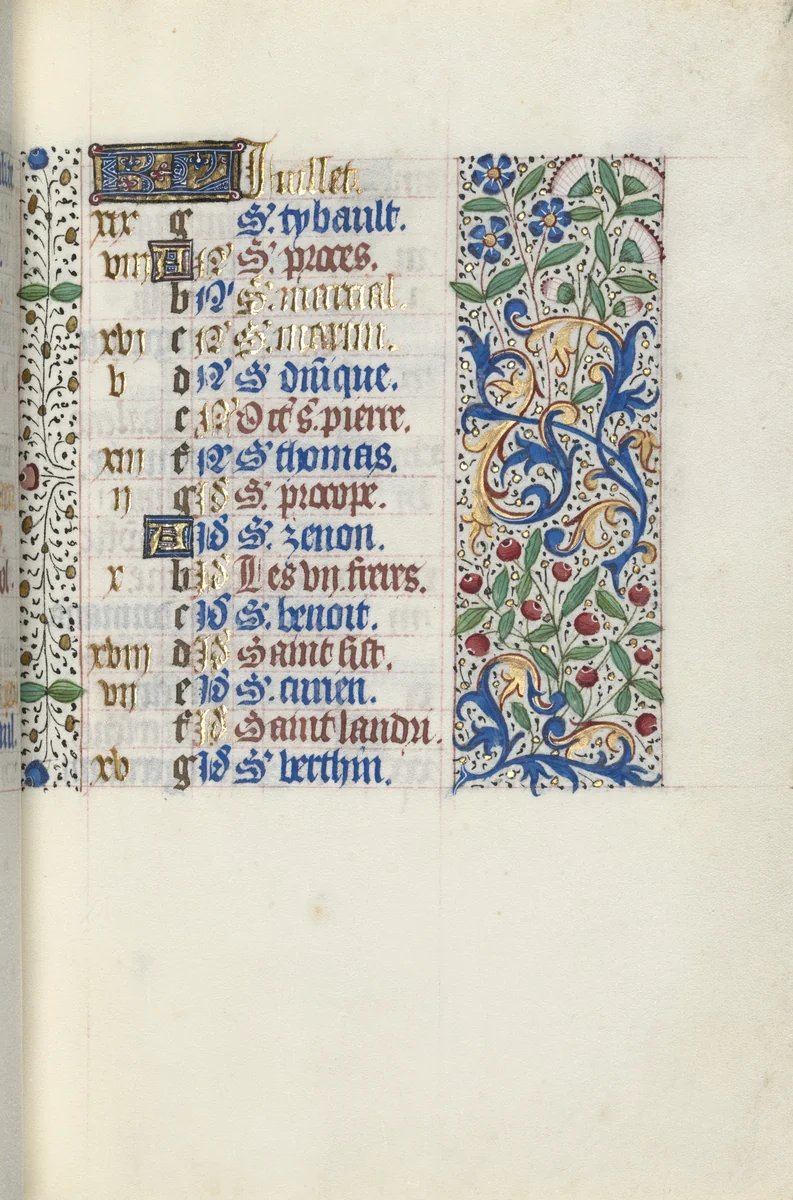 KL Juillet.
xix g S'. tybault.
viii A N' S'. proces.
b N' S'. marcial.
xvj c N' S'. marim.
v d N' S' dñique.
e N' Oct' s. pierre.
xiii f N' S' thomas.
ij g Id S'. procope.
A Id S'. zenon.
x b Id Les vij. freres.
c Id S'. benoit.
xviij d Id Saint sixt.
vij e Id S'.
f Id Saint landri.
xv g Id S' berthin.